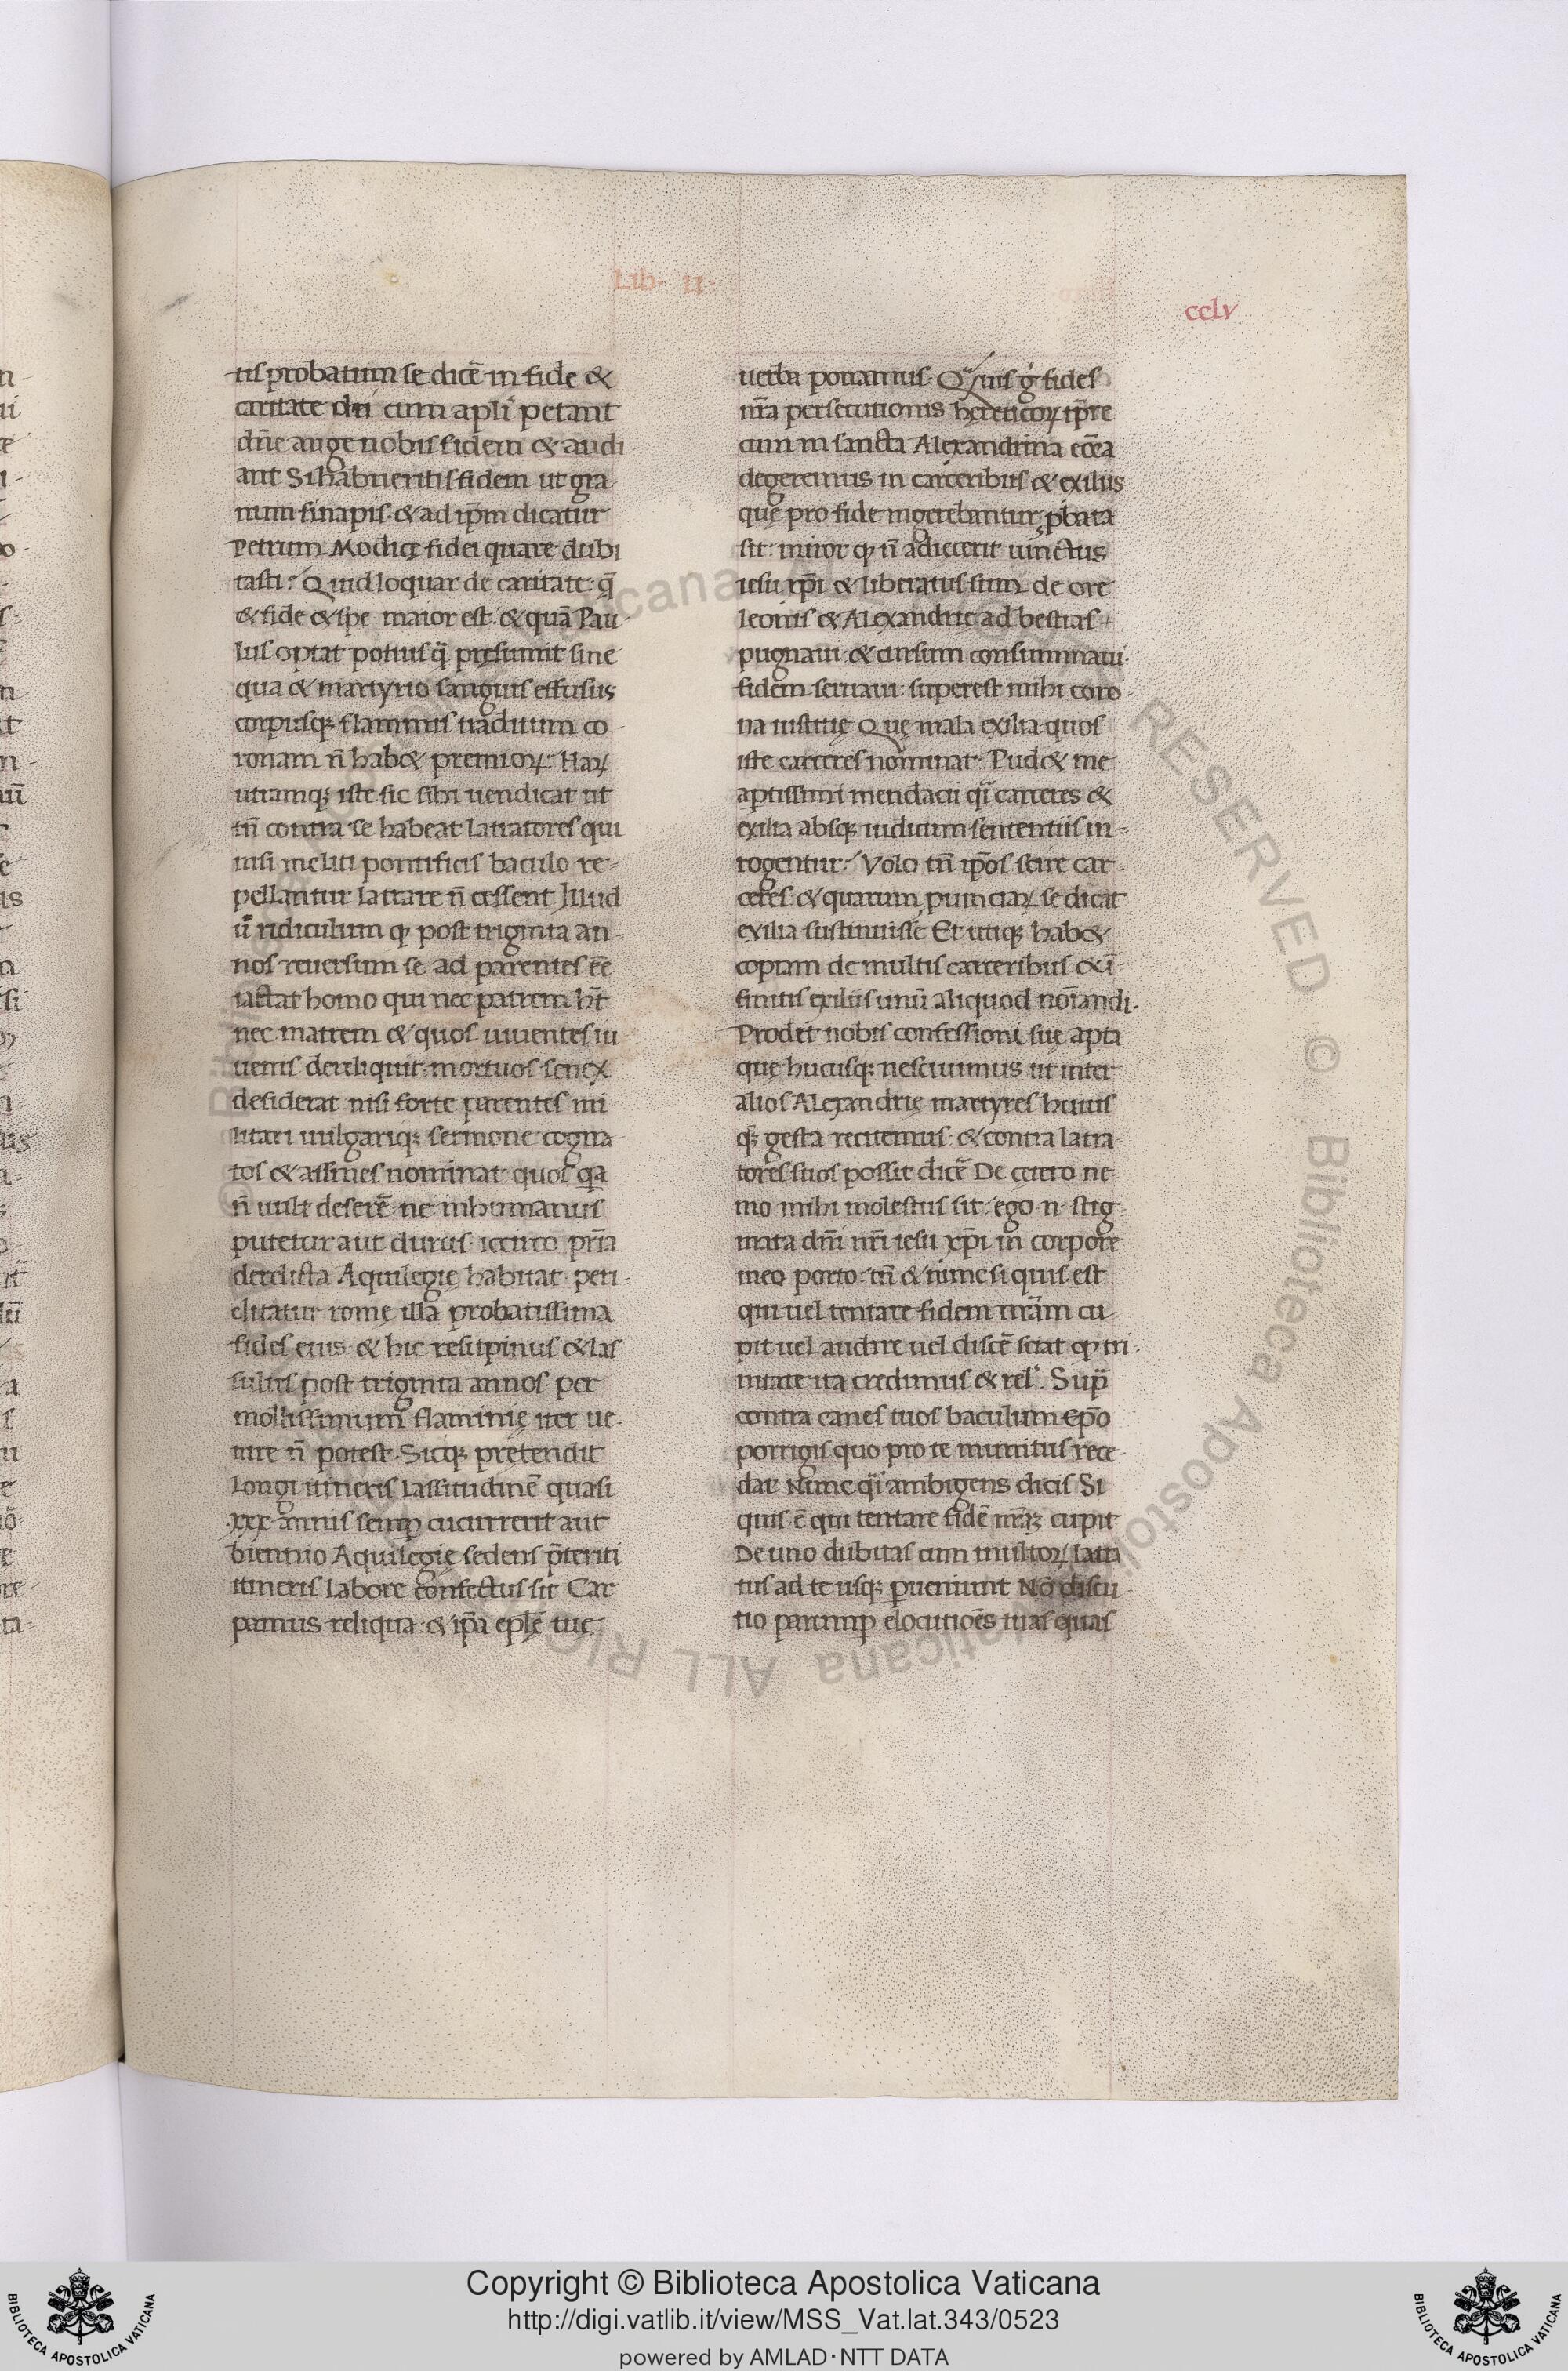 Lib· II·
ccLv
tis probatum se dicē in fide &
caritate dn̄i cum apl̄i petant
dn̄e auge nobis fidem & audi
ant Si habueritis fidem ut gra
num sinapis· & ad ip̄m dicatur
Petrum Modicę fidei quare dubi
tasti? Quid loquar de caritate· q̄
& fide & spe maior est· & quā Pau
lus optat potius q̄ pręsumit sine
qua & martyrio sanguis effusus
corpusq; flammis traditum co
ronam n̄ hab& premioꝝ· Haꝝ
utramq; iste sic sibi uendicat ut
tn̄ contra se habeat latratores qui
nisi incliti pontificis baculo re-
pellantur latrare n̄ cessent Illud
ū ridiculum ꝙ post triginta an
nos reuersum se ad parentes ēē
iactat homo qui nec patrem hт̄
nec matrem & quos uiuentes iu
uenis dereliquit· mortuos senex
desiderat nisi forte parentes mi
litari uulgariq; sermone cogna
tos & affines nominat· quos qa
n̄ uult deserē· ne inhumanus
putetur aut durus· iccirco pr̄ia
derelicta Aquilegię habitat· peri
clitatur romę illa probatissima
fides eius· & hic resupinus & las
sulus post triginta annos per
mollissimum flaminię iter ue-
nire n̄ potest· Sicq; prętendit
longi itineris lassitudinē quasi
·xxx· annis semꝑ cucurrerit aut
biennio Aquilegię sedens p̄teriti
itineris labore confectus sit Car
pamus reliqua· & ip̄a epl̄ę tuę
uerba ponamus· Quis g̊ fides
nr̄a persecutionis hęreticoꝝ tp̄re
cum in sancta Alexandrina ecc̄a
degeremus in carceribus & exiliis
quę pro fide ingerebantur, ꝓbata
sit· miror ꝙ n̄ adiecerit uinctus
iesu xp̄i & liberatus sum de ore
leonis & Alexandrię ad bestias
pugnaui· & cursum consummaui·
fidem seruaui· superest mihi coro
na iustitię Quę mala exilia quos
iste carceres nominat· Pud& me
aptissimi mendacii q̄i carceres &
exilia absq; iudicum sententiis in-
rogentur· Volo tn̄ ip̄os scire car
ceres· & quarum ꝓuinciaꝝ se dicat
exilia sustinuisse Et utiq; hab&
copiam de multis carceribus & ī
finitis exiliis unū aliquod noīandi·
Prodet nobis confessioni suę apta
quę hucusq; nesciuimus ut inter
alios Alexandrię martyres huius
q; gesta recitemus· & contra latra
tores suos possit dicē De cętero ne
mo mihi molestus sit· ego ·n· stig
mata dn̄i nr̄i iesu xp̄i in corpore
meo porto· tn̄ & nunc si quis est
qui uel tentare fidem nr̄am cu
pit uel audire uel discē sciat ꝙ tri
nitate ita credimus & rel̄· Sup̄
contra canes tuos baculum ep̄o
porrigis quo pro te munitus rece
dat Nunc q̄i ambigens dicis Si
quis ē qui tentare fidē nr̄aꝫ cupit
De uno dubitas cum multoꝝ latra
tus ad te usq; ꝑueniunt Nō discu
tio parumꝑ elocutioēs tuas quas
Copyright © Biblioteca Apostolica Vaticana
http://digi.vatlib.it/view/MSS_Vat.lat.343/0523
powered by AMLAD·NTT DATA